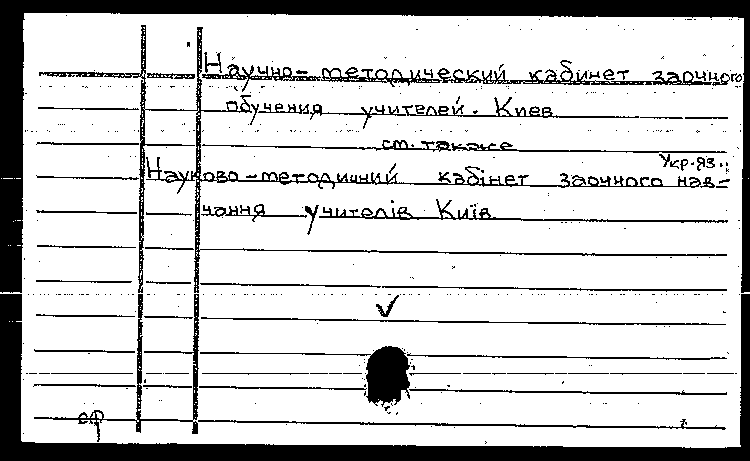 Научно-методический кабинет заочного
обучения учителей. Киев
см. также
Укр. яз.
Науково-методичний кабінет заочного нав-
чання учителів Київ